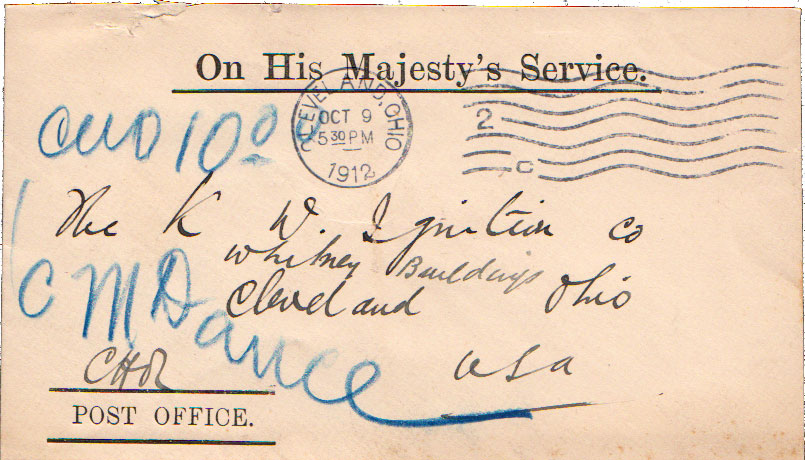 On His Majesty's Service.
CLEVELAND, OHIO
OCT 9
5 30 PM
1912
2
C
10 0
The K W. Ignition Co
Whitney Buildings
Cleveland Ohio
USA
C M Dance
POST OFFICE.